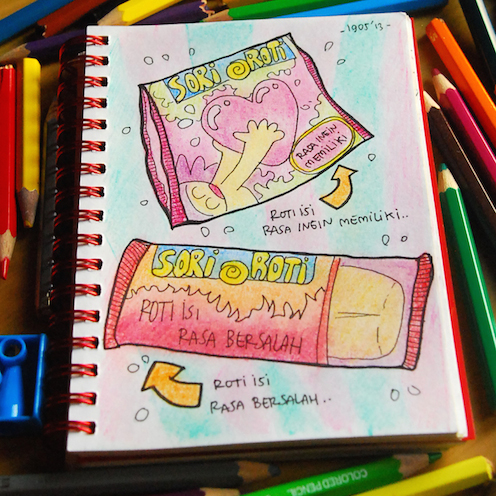 -1905'13-
SORI ROTI
RASA INGIN
MEMILIKI
ROTI ISI
RASA INGIN MEMILIKI..
SORI ROTI
ROTI ISI
RASA BERSALAH
ROTI ISI
RASA BERSALAH..
COLORED PENCIL